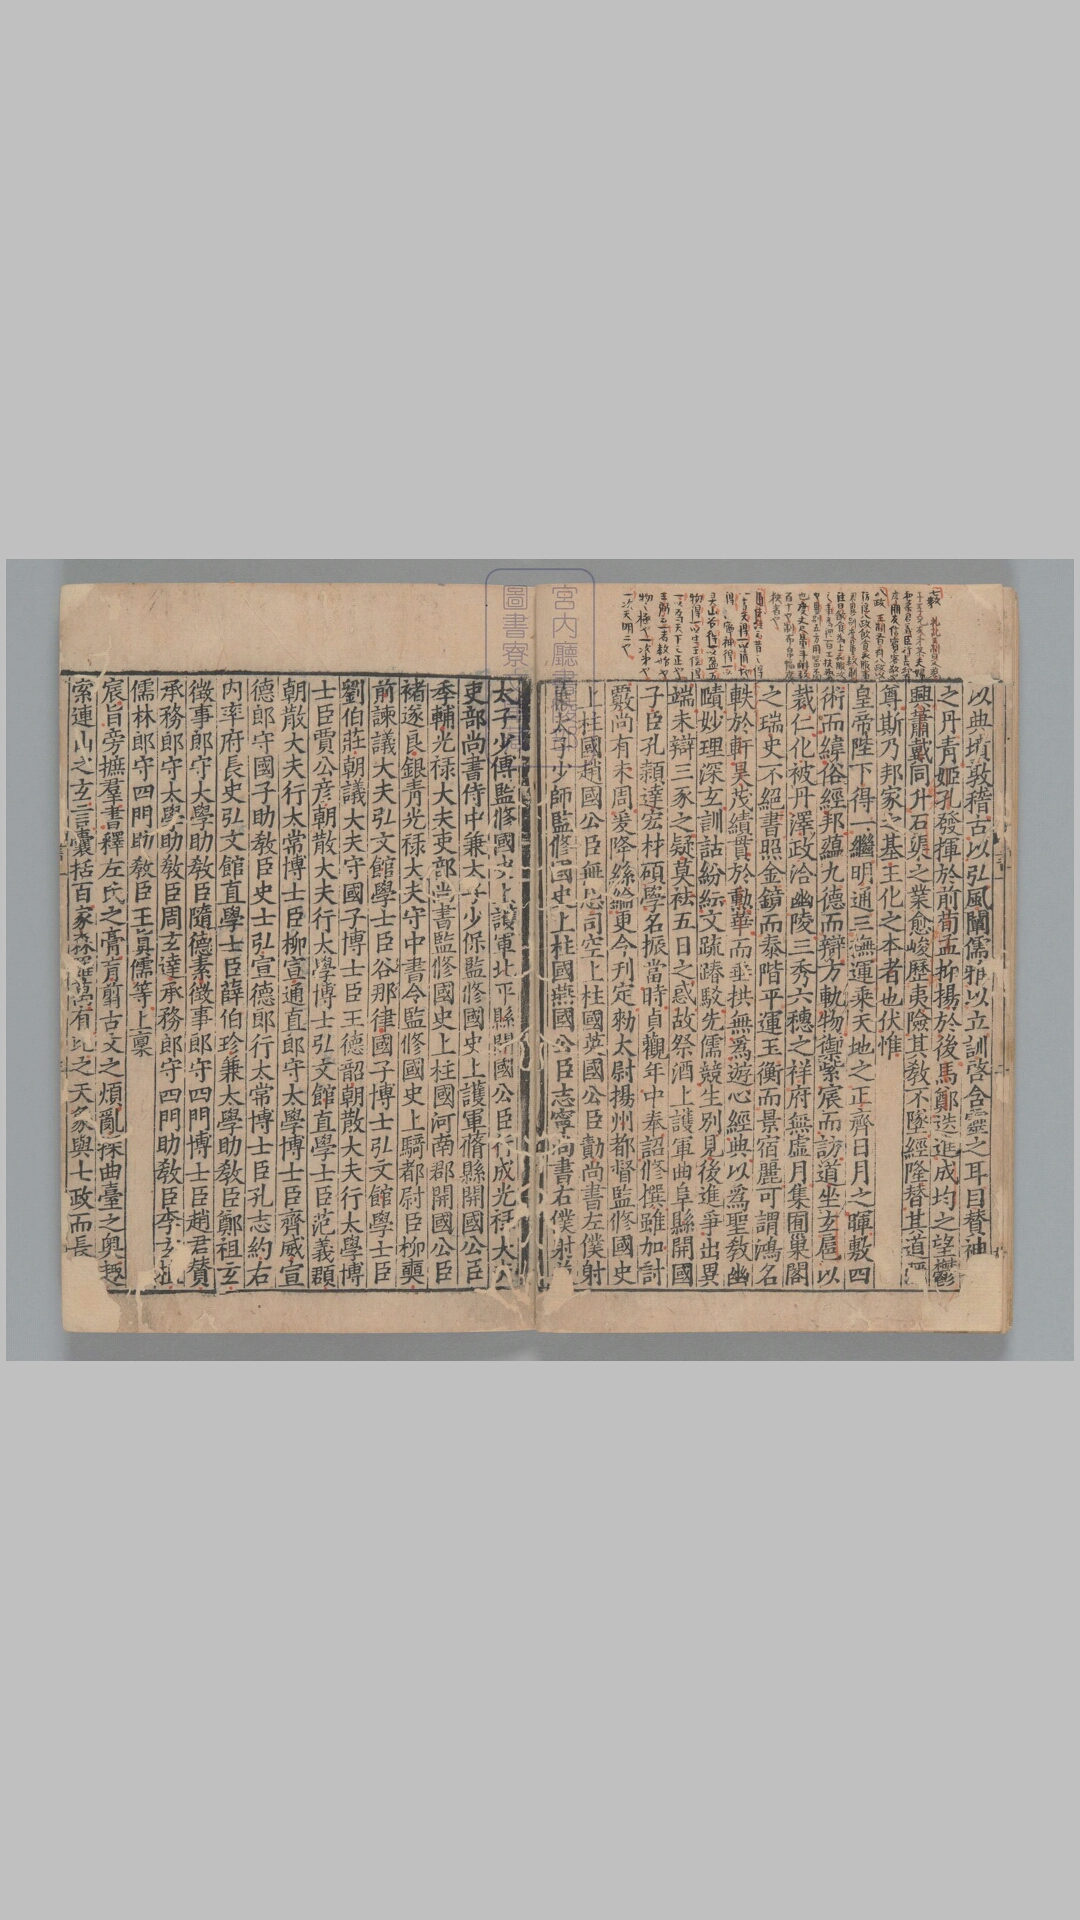 以典墳敦稽古以弘風闡儒雅以立訓啓含靈之耳目贊神
之丹青姬孔發揮於前荀孟抑揚於後馬鄭迭進成均之望鬱
興蕭戴同升石渠之業愈峻歷夷險其敎不墜經隆替其道
尊斯乃邦家之基王化之本者也伏惟
皇帝陛下得一繼明通三撫運乘天地之正齊日月之暉敷四
術而緯俗經邦蘊九德而辯方軌物御紫宸而訪道坐玄扈以
裁仁化被丹澤政洽幽陵三秀六穗之祥府無虛月集囿巢閣
之瑞史不絕書照金鏡而泰階平運玉衡而景宿麗可謂鴻名
軼於軒昊茂績貫於勳華而垂拱無爲遊心經典以爲聖敎幽
賾妙理深玄訓詁紛紜文疏踳駮先儒競生別見後進爭出異
端未辯三豕之疑莫袪五日之惑故祭酒上護軍曲阜縣開國
子臣孔穎達宏材碩學名振當時貞觀年中奉詔脩撰雖加討
覈尚有未周爰降絲綸更令刊定勑太尉揚州都督監修國史
上柱國趙國公臣無忌司空上柱國英國公臣勣尚書左僕射
太子少師監修國史上柱國燕國公臣志寧尚書右僕射
太子少傅監修國史上護軍北平縣開國公臣行成光祿大夫
吏部尚書侍中兼太子少保監修國史上護軍蓨縣開國公臣
季輔光祿大夫吏部尚書監修國史上柱國河南郡開國公臣
褚遂良銀青光祿大夫守中書令監修國史上騎都尉臣柳奭
前諫議大夫弘文館學士臣谷那律國子博士弘文館學士臣
劉伯莊朝議大夫守國子博士臣王德韶朝散大夫行太學博
士臣賈公彥朝散大夫行大學博士弘文館直學士臣范義頵
朝散大夫行太常博士臣柳宣通直郎守太學博士臣齊威宣
德郎守國子助敎臣史士弘宣德郎行太常博士臣孔志約右
內率府長史弘文館直學士臣薛伯珍兼太學助敎臣鄭祖玄
徵事郎守大學助敎臣隨德素徵事郎守四門博士臣趙君贊
承務郎守太學助敎臣周玄達承務郎守四門助敎臣李玄植
儒林郎守四門助敎臣王眞儒等上稟
宸旨旁摭羣書釋左氏之膏肓翦古文之煩亂探曲臺之奧趣
索連山之玄言囊括百家森羅萬有比之天象與七政而長
宮內廳書
圖書寮